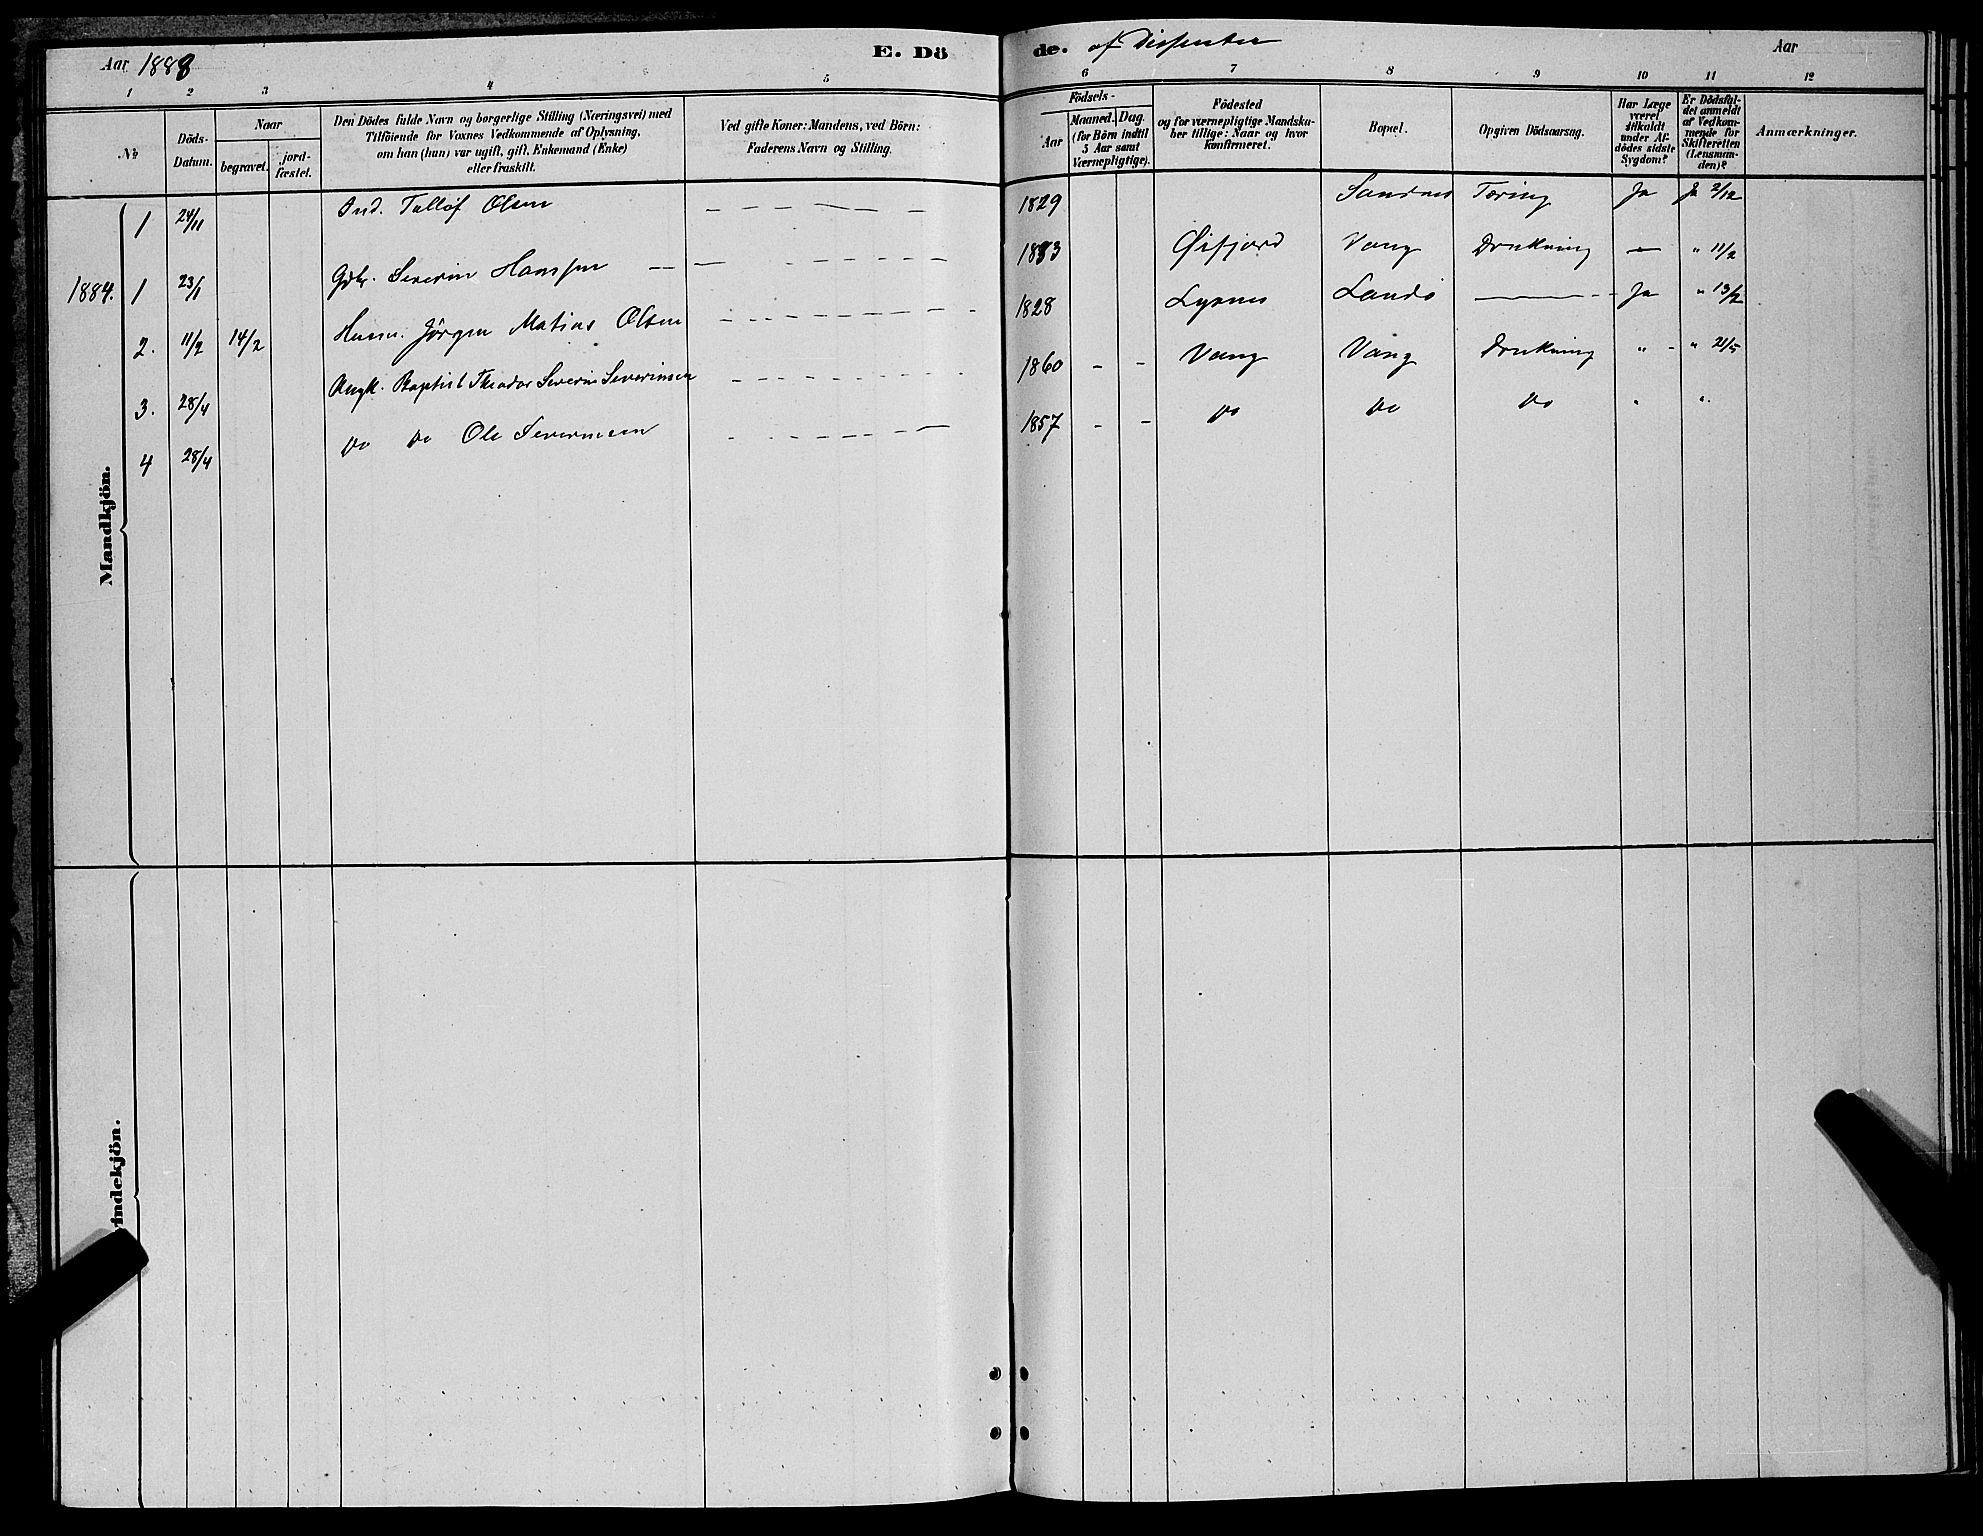 Aar 1888 E. Dö de. af Dissenter Aar
1 2 3 4 5 6 7 8 9 10 11 12
No
Döds-Datum.
Naar
begravet.
jord-fæstet.
Den Dödes fulde Navn og borgerlige Stilling (Næringsvei) med
Tilföiende for Voxnes Vedkommende af Oplysning,
om han (hun) var ugift, gift, Enkemand (Enke)
eller fraskilt.
Ved gifte Koner: Mandens, ved Börn:
Faderens Navn og Stilling.
Födsels-
Aar
Maaned. Dag.
(for Börn indtil
5 Aar samt
Værnepligtige).
Födested
og for værnepligtige Mandska-
ber tillige: Naar og hvor
konfirmeret.
Bopæl.
Opgiven Dödsaarsag.
Har Læge
været
tilkaldt
under Af-
dödes sidste
Sygdom?
Er Dödsfal-
det anmeldt
af Vedkom-
mende for
Skifteretten
(Lensman-
den)?
Anmærkninger.
Mandkjön.
1 24/11 Ind. Tallof Olsen 1829 Sandnes Tæring Ja Ja 2/12
1884. 1 23/1 Gdbr. Severin Hanssen 1833 Øifjord Vang Drukning — " 11/2
2. 11/2 14/2 Husm. Jörgen Matias Olsen 1828 Lysnes Landö Ja " 13/2
3. 28/4 Ungk. Baptist Theodor Severin Severinsen 1860 - - Vang Vang Drukning " - " 21/5
4 28/4 Do Do Ole Severinsen 1857 - - Do Do Do " "
vindekjön.